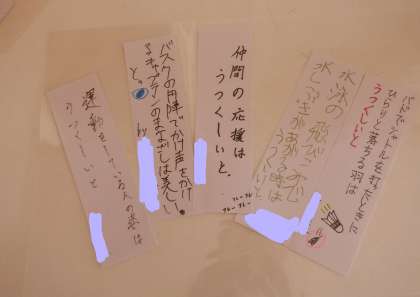 バドでシャトルを打ったときに
ひらりと落ちる羽は
うつくしいと
水泳の飛びこみで
水しぶきがあがる時は
うつくしいと
仲間の応援は
うつくしいと。
フレーフレー
フレーフレー
バスケの円陣でかけ声をかけ
るキャプテンのまなざしは美しい
と。
by
運動をしている人の姿は
うつくしいと